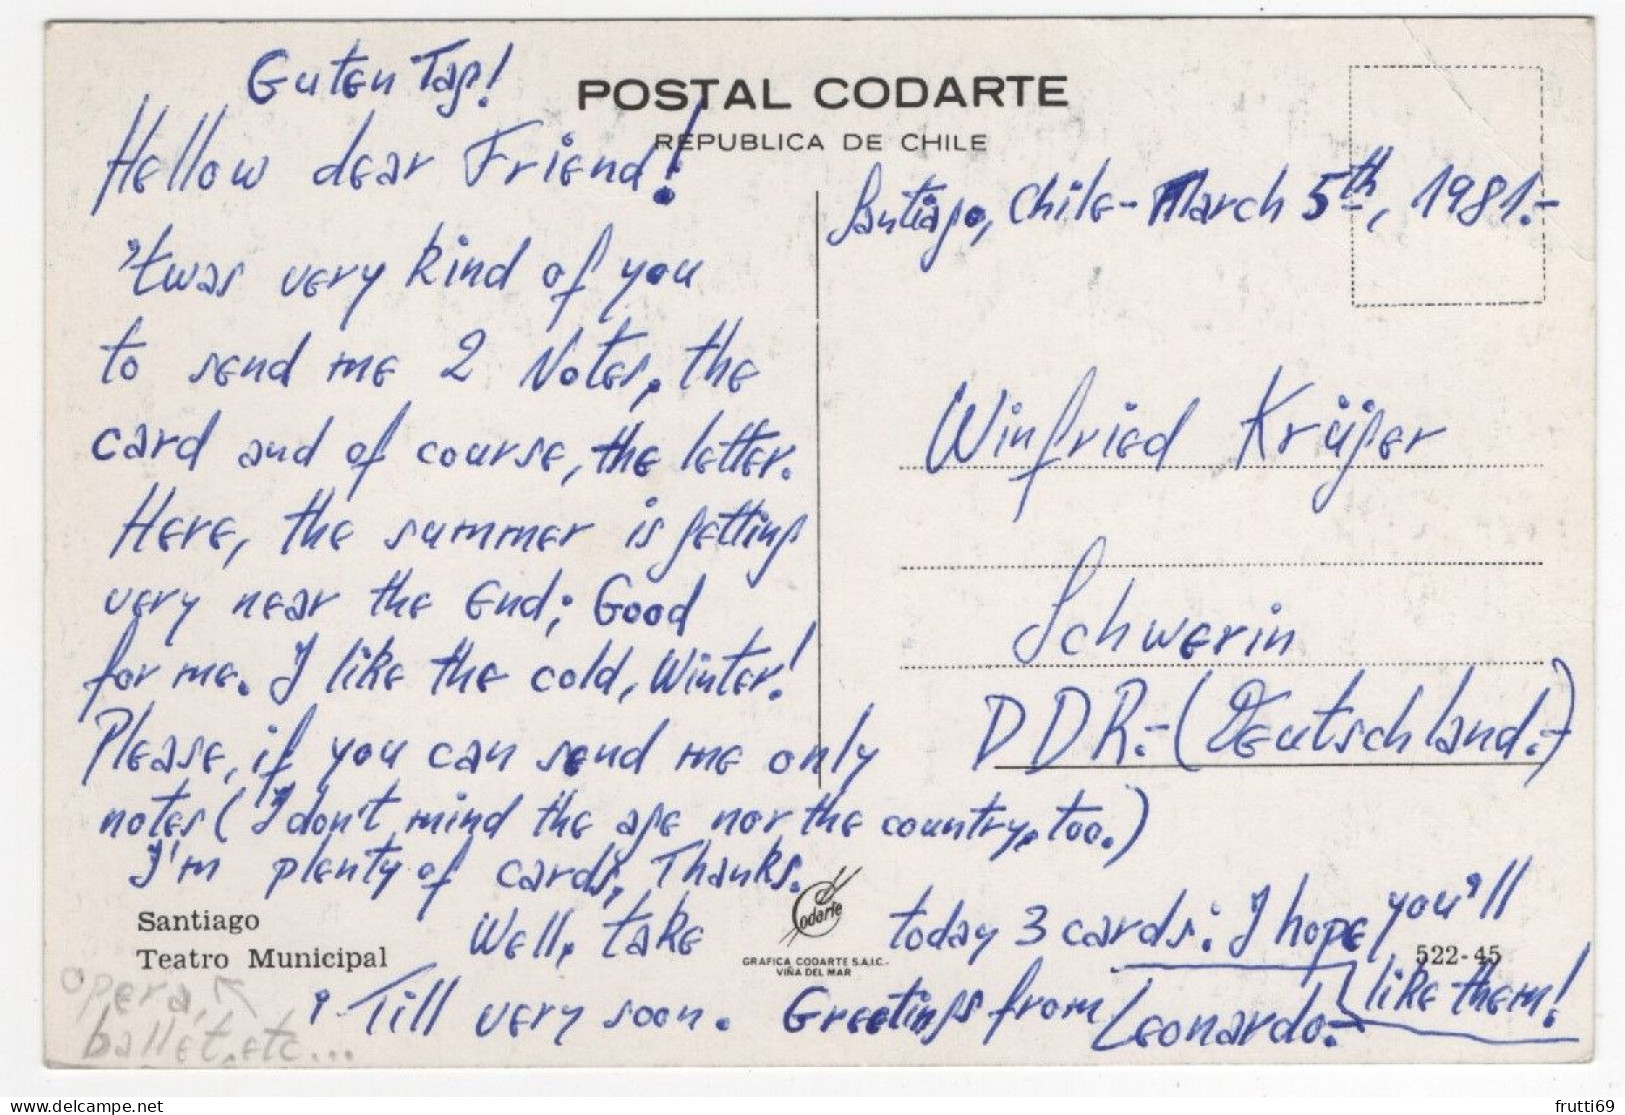 Guten Tag!
POSTAL CODARTE
REPUBLICA DE CHILE
Hellow dear Friend!
Santiago, Chile - March 5th, 1981.-
'twas very kind of you
to send me 2 Notes, the
card and of course, the letter.
Here, the summer is getting
very near the end; Good
for me. I like the cold, Winter!
Please, if you can send me only
notes (I don't mind the age nor the country, too.)
I'm plenty of cards, Thanks.
Well, take today 3 cards: I hope you'll
like them!
Till very soon. Greetings from Leonardo.-
Winfried Krüger
Schwerin
DDR.- (Deutschland.-)
Santiago
Teatro Municipal
opera,
ballet, etc...
Codarte
GRAFICA CODARTE S.A.I.C.
VIÑA DEL MAR
522-45
delcampe.net
frutti69